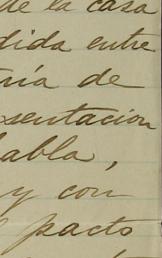 de la casa
dida entre
ría de
sentacion
habla,
y con
pacto